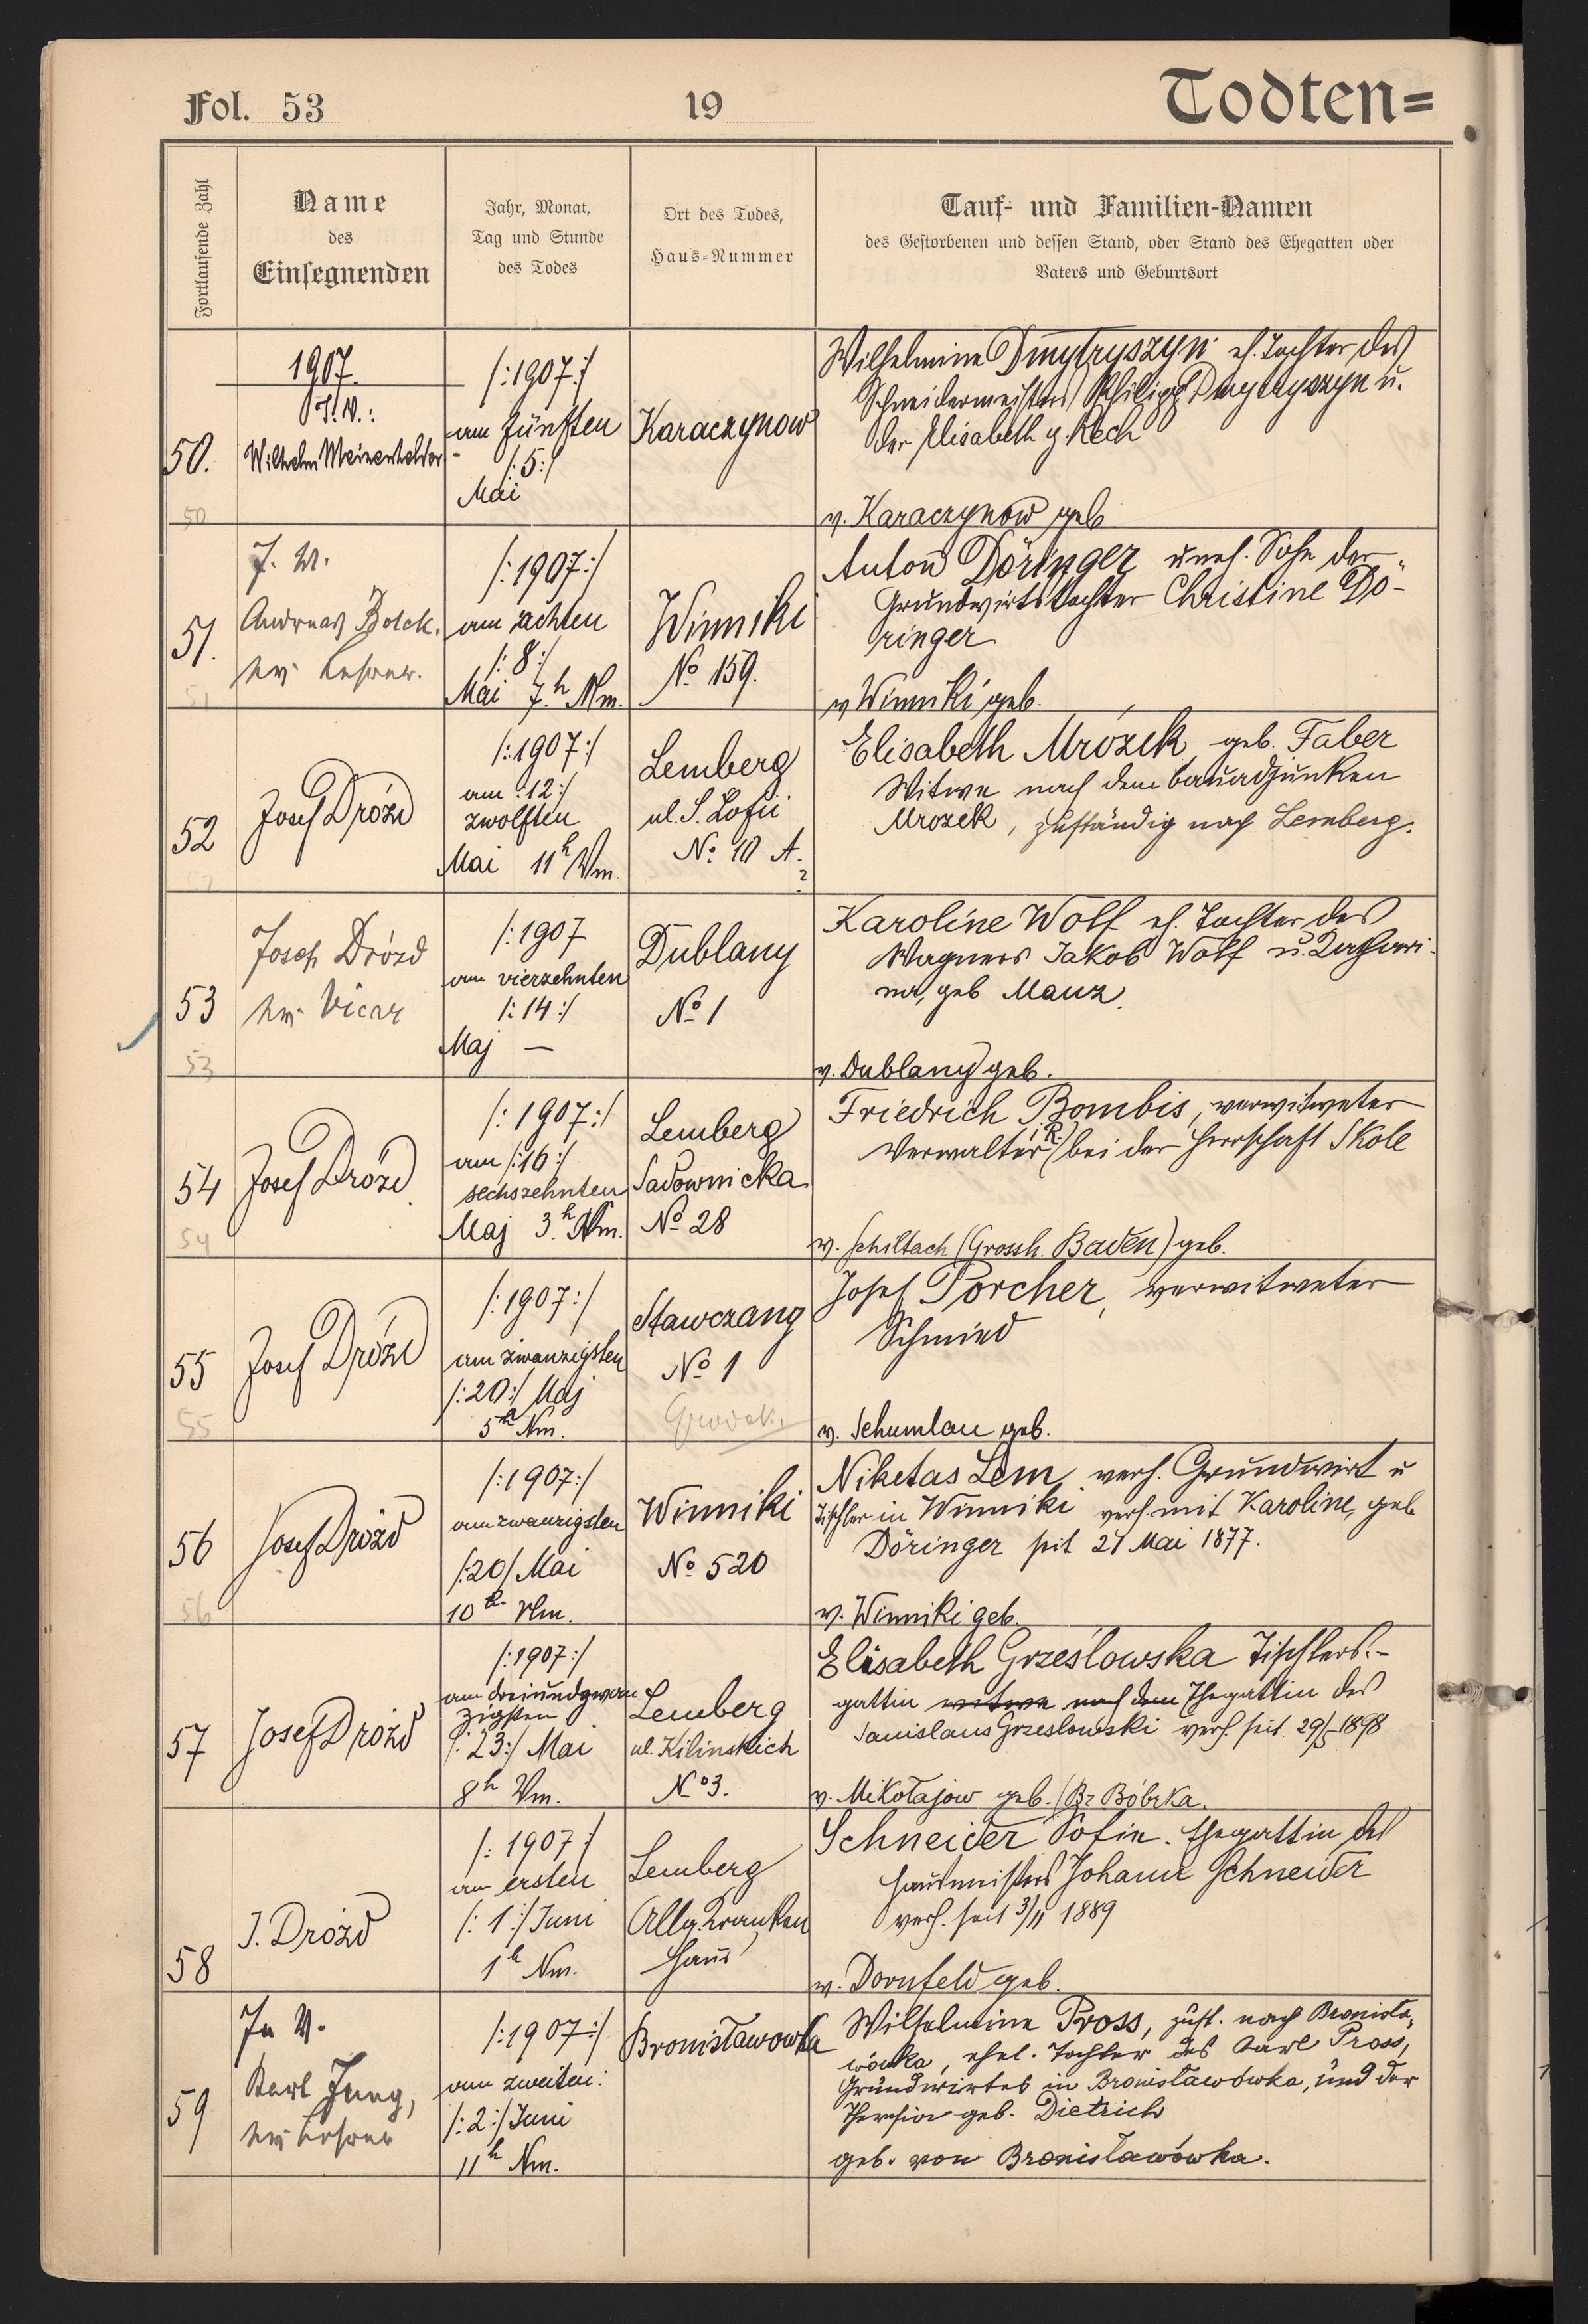 Fol. 53
19
Todten=
Fortlaufende Zahl
Name
des
Einsegnenden
Jahr, Monat,
Tag und Stunde
des Todes
Ort des Todes,
Haus-Nummer
Tauf- und Familien-Namen
des Gestorbenen und dessen Stand, oder Stand des Ehegatten oder
Vaters und Geburtsort
50.
50
1907.
I. V.:
Wilhelm
/:1907:/
am fünften
/:5:/
Mai
Karaczynow
Wilhelmine Dmytryszyn eh. Tochter des
Schneidermeisters Philipp Dmytryszyn u.
der Elisabeth g. Rech
v. Karaczynow geb
51.
51
I. V.
Andreas Bolek,
ev. Lehrer.
/:1907:/
am achten
/:8:/
Mai 7h Nm.
Winniki
No 159.
Anton Döringer uneh. Sohn der
Grundwirtstochter Christine Dö-
ringer
v Winniki geb.
52
52
Josef Drózd
/:1907:/
am :12:/
zwölften
Mai 11h Vm.
Lemberg
ul. S. Zofii
No 10 A.
?
Elisabeth Mrózek geb. Faber
Witwe nach dem Bauadjunken
Mrozek, zuständig nach Lemberg.
53
53
Josef Drózd
ev. Vicar
/:1907
am vierzehnten
/:14:/
Maj —
Dublany
No 1
Karoline Wolf eh. Tochter des
Wagners Jakob Wolf u. Kathari-
na, geb Manz.
v. Dublany geb.
54
54
Josef Drózd
/:1907:/
am /:16:/
sechszehnten
Maj 3h Nm.
Lemberg
Sadownicka
No 28
Friedrich Bombis, verwitweter
Verwalter (i. R.) bei der Herrschaft Skole
v. Schiltach (Grossh. Baden) geb.
55
55
Josef Drózd
/:1907:/
am zwanzigsten
/:20:/ Maj
5h Nm.
Stawczany
No 1
Grodek
Josef Porcher, verwitweter
Schmied
v. Schumlau geb.
56
56
Josef Drózd
/:1907:/
am zwanzigsten
/:20/ Mai
10h Vm.
Winniki
No 520
Niketas Lem verh. Grundwirt u
Tischler in Winniki verh. mit Karoline, geb
Döringer seit 21 Mai 1877.
v. Winniki geb.
57
Josef Drózd
/:1907:/
am dreiundzwan
zigsten
/:23:/ Mai
8h Vm.
Lemberg
ul. Kilinskich
No 3.
Elisabeth Grześlowska Tischlers-
gattin witwe nach dem Ehegattin des
Stanislaus Grzeslowski verh. seit 29/5 1898
v. Mikołajow geb. (Bz Bóbrka.
58
J. Drózd
/:1907:/
am ersten
/:1:/ Juni
1h Nm.
Lemberg
Allg. Kranken
haus
Schneider Sofie. Ehegattin des
Hausmeisters Johann Schneider
verh. seit 3/11 1889
v. Dornfeld geb.
59
In V.
Karl Jung,
ev. Lehrer
/:1907:/
am zweiten:
/:2:/ Juni
11h Nm.
Bronisławowka
Wilhelmine Pross, zust. nach Bronisła-
wówka, ehel. Tochter des Karl Pross,
Grundwirtes in Bronisławówka, und der
Theresia geb. Dietrich
geb. von Bronisławówka.